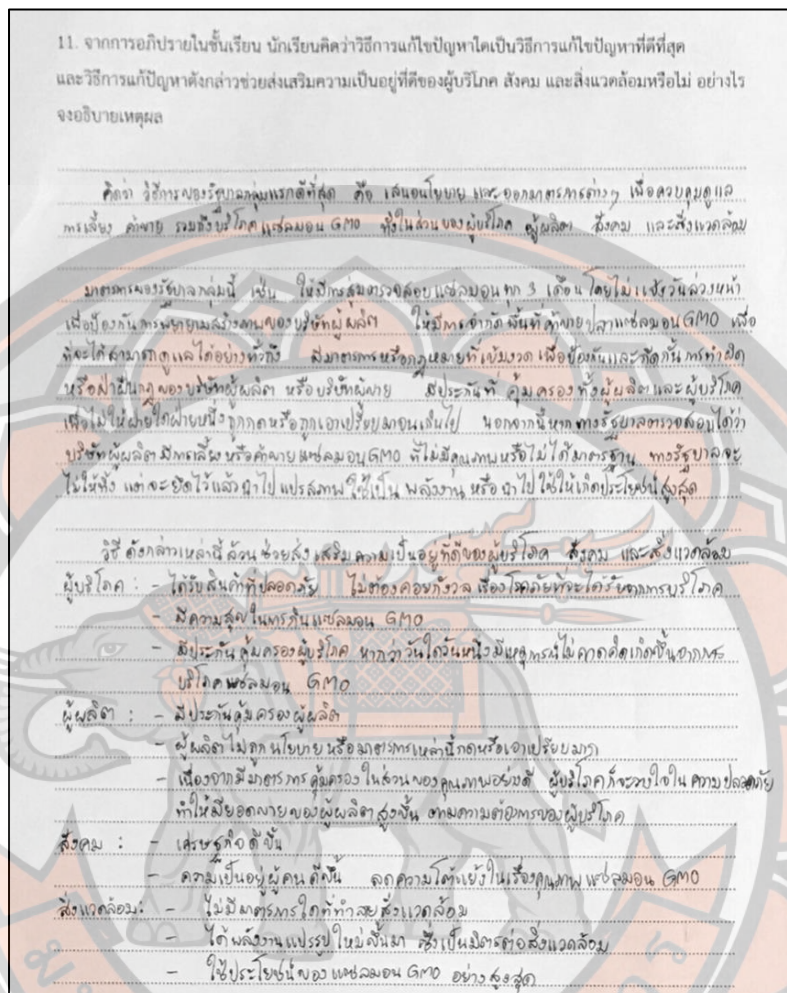 11. จากการอภิปรายในชั้นเรียน นักเรียนคิดว่าวิธีการแก้ไขปัญหาใดเป็นวิธีการแก้ไขปัญหาที่ดีที่สุด
และวิธีการแก้ปัญหาดังกล่าวช่วยส่งเสริมความเป็นอยู่ที่ดีของผู้บริโภค สังคม และสิ่งแวดล้อมหรือไม่ อย่างไร
จงอธิบายเหตุผล
คิดว่า วิธีการของรัฐบาลกลุ่มแรกดีที่สุด คือ เสนอนโยบาย และออกมาตรการต่างๆ เพื่อควบคุมดูแล
การเลี้ยง ค้าขาย รวมถึงบริโภคแซลมอน GMO ทั้งในส่วนของผู้บริโภค ผู้ผลิต สังคม และสิ่งแวดล้อม
มาตรการของรัฐบาลกลุ่มนี้ เช่น ให้มีการสุ่มตรวจสอบแซลมอนทุก 3 เดือน โดยไม่แจ้งวันล่วงหน้า
เพื่อป้องกันการพยายามสร้างภาพของบริษัทผู้ผลิต ให้มีการจำกัดพื้นที่ค้าขายปลาแซลมอน GMO เพื่อ
ที่จะได้สามารถดูแลได้อย่างทั่วถึง มีมาตรการหรือกฎหมายที่เข้มงวด เพื่อป้องกันและกีดกันการทำผิด
หรือฝ่าฝืนกฎของบริษัทผู้ผลิต หรือบริษัทผู้ขาย มีประกันที่ คุ้มครองทั้งผู้ผลิตและผู้บริโภค
เพื่อไม่ให้ฝ่ายใดฝ่ายหนึ่งถูกกดหรือถูกเอาเปรียบมากเกินไป นอกจากนี้หากทางรัฐบาลตรวจสอบได้ว่า
บริษัทผู้ผลิตมีการเลี้ยงหรือค้าขายแซลมอน GMO ที่ไม่มีคุณภาพหรือไม่ได้มาตรฐาน ทางรัฐบาลจะ
ไม่ให้ทิ้ง แต่จะยึดไว้แล้วนำไปแปรสภาพใช้เป็น พลังงาน หรือ นำไปใช้ให้เกิดประโยชน์สูงสุด
วิธี ดังกล่าวเหล่านี้ล้วนช่วยส่งเสริมความเป็นอยู่ที่ดีของผู้บริโภค สังคม และสิ่งแวดล้อม
ผู้บริโภค : - ได้รับสินค้าที่ปลอดภัย ไม่ต้องคอยกังวล เรื่องโรคภัยที่จะได้รับจากการบริโภค
- มีความสุขในการกินแซลมอน GMO
- มีประกันคุ้มครองผู้บริโภค หากว่าวันใดวันหนึ่งมีเหตุการณ์ไม่คาดคิดเกิดขึ้นจากการ
บริโภคแซลมอน GMO
ผู้ผลิต : - มีประกันคุ้มครองผู้ผลิต
- ผู้ผลิตไม่ถูกนโยบายหรือมาตรการเหล่านี้กดหรือเอาเปรียบมาก
- เนื่องจากมีมาตรการคุ้มครองในส่วนของคุณภาพอย่างดี ผู้บริโภคก็จะวางใจในความปลอดภัย
ทำให้มียอดขายของผู้ผลิตสูงขึ้น ตามความต้องการของผู้บริโภค
สังคม : - เศรษฐกิจดีขึ้น
- ความเป็นอยู่ผู้คนดีขึ้น ลดความโต้แย้งในเรื่องคุณภาพแซลมอน GMO
สิ่งแวดล้อม: - ไม่มีมาตรการใดที่ทำลายสิ่งแวดล้อม
- ได้พลังงานแปรรูปใหม่ขึ้นมา ซึ่งเป็นมิตรต่อสิ่งแวดล้อม
- ใช้ประโยชน์ของแซลมอน GMO อย่างสูงสุด